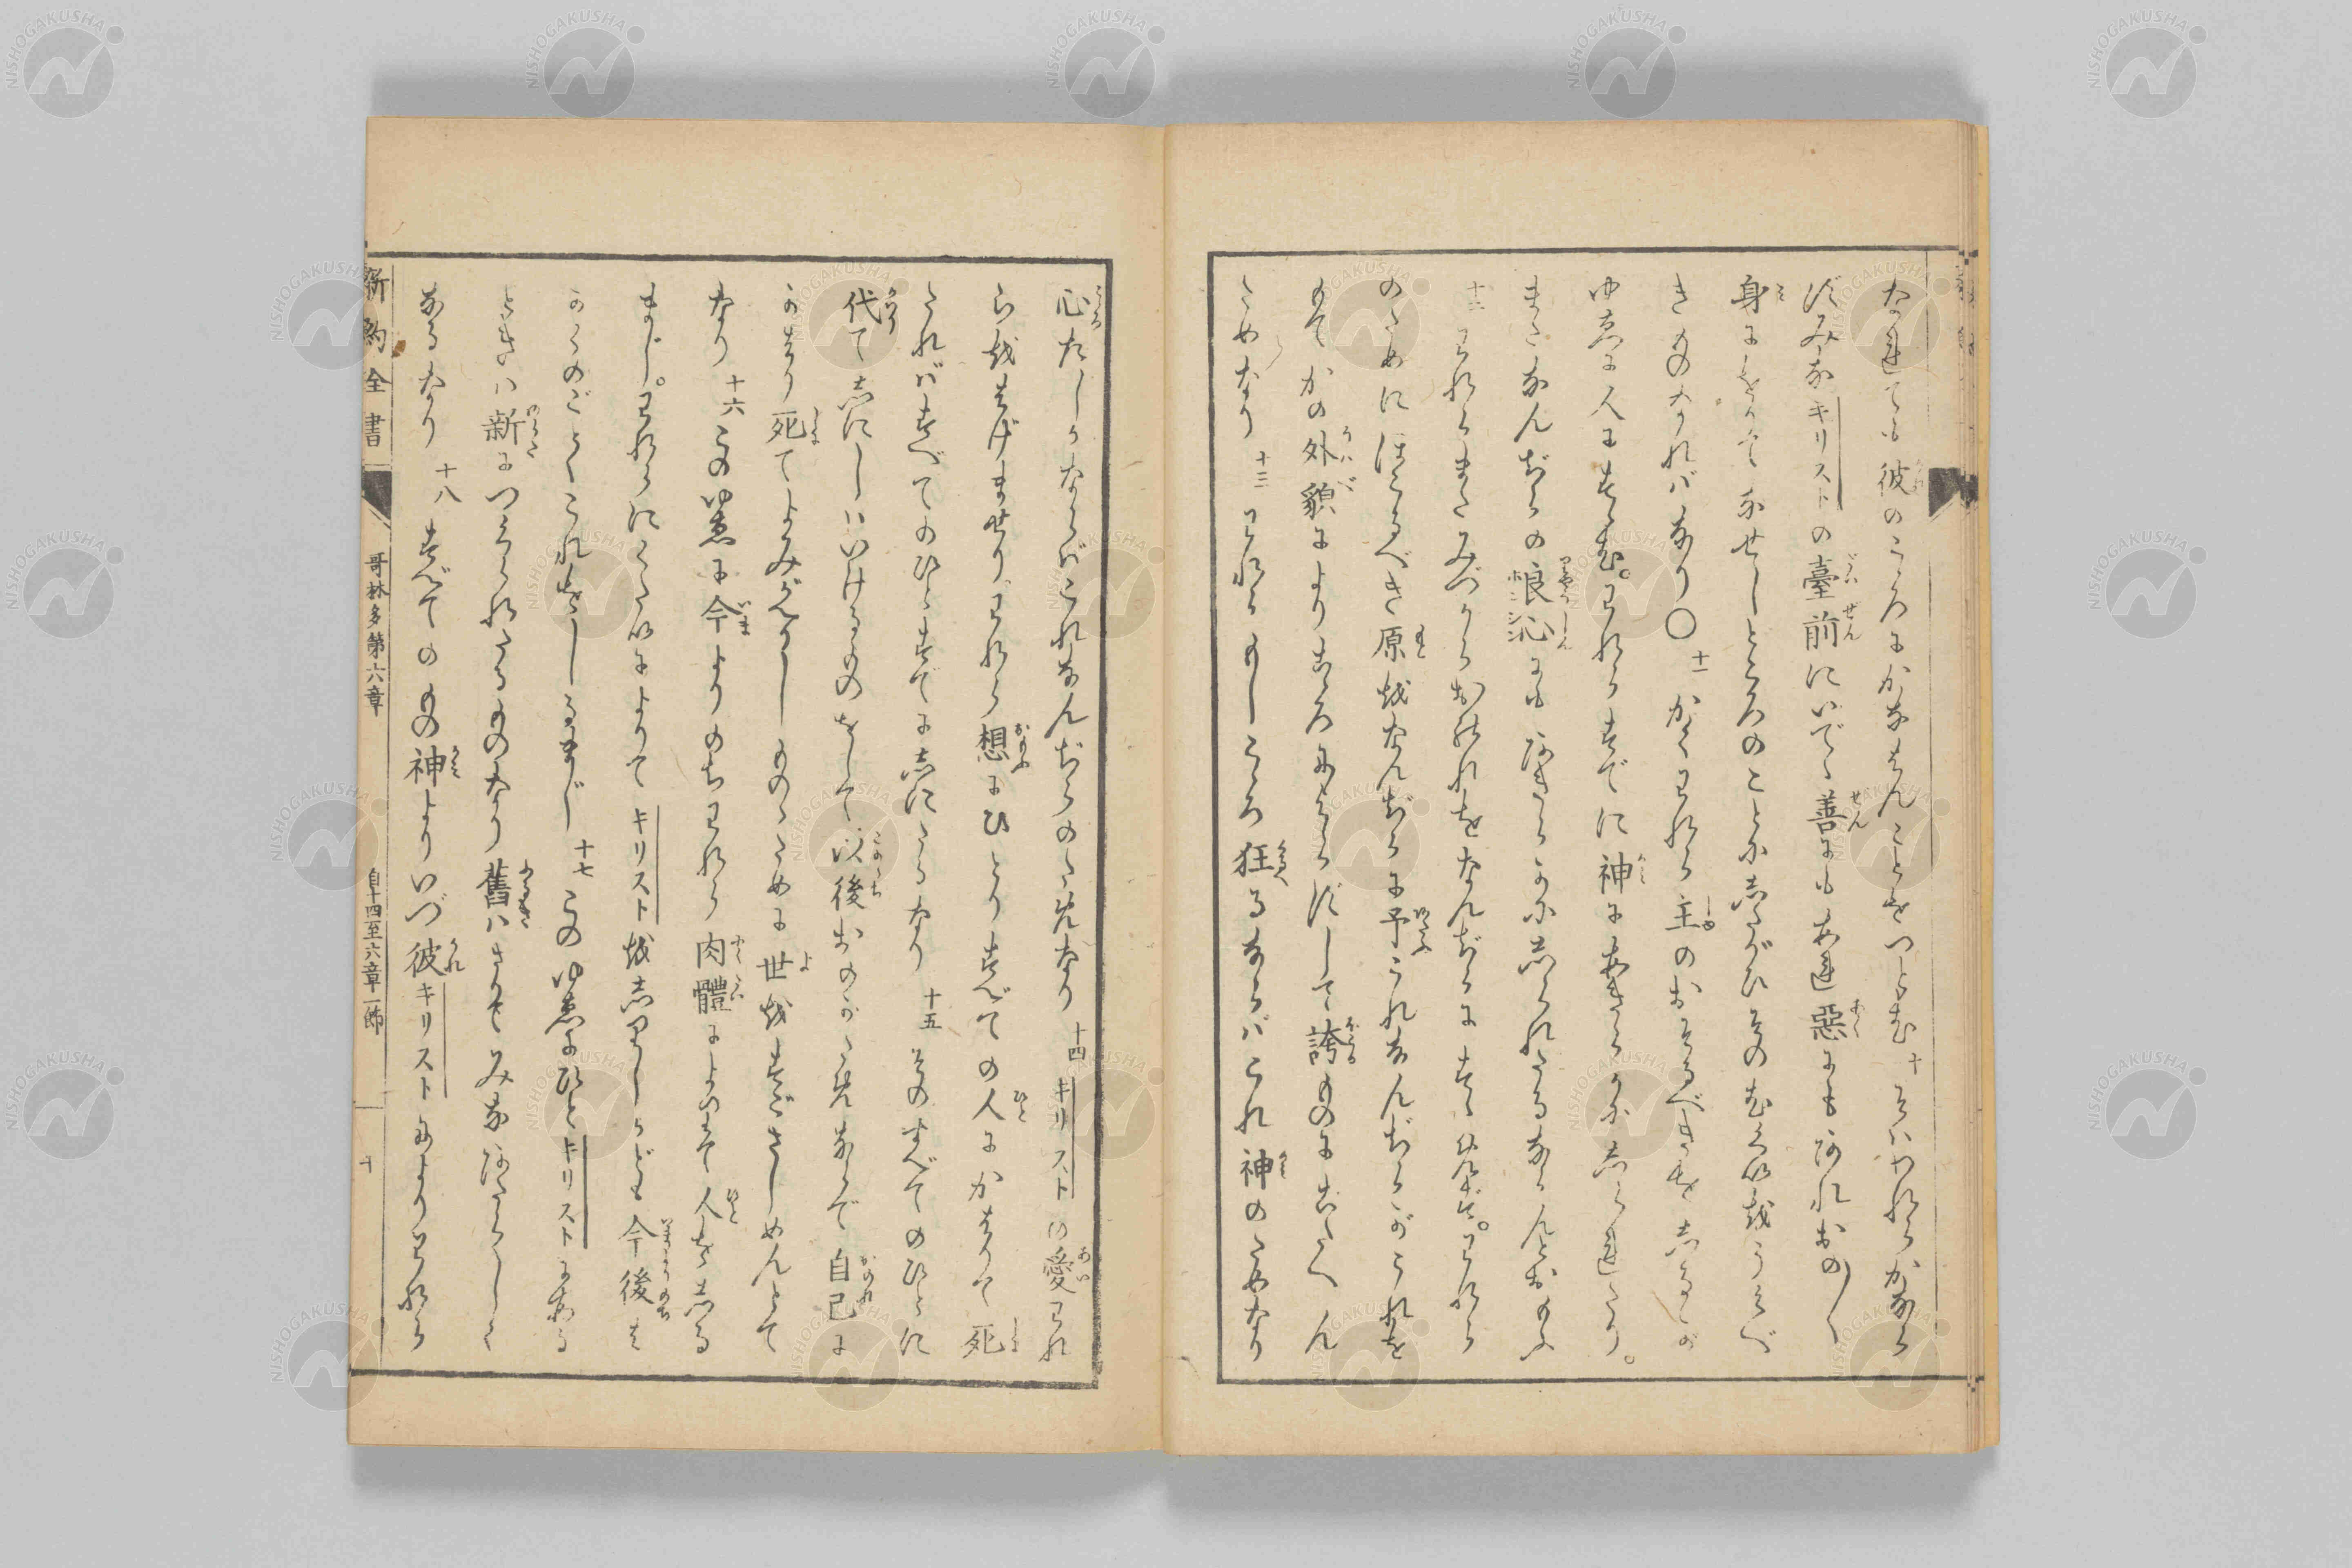 な連ても彼のこゝろにかなはんことをつとむ 十 そハわれらかなら
ずみなキリストの臺前にいでゝ善にもあ連惡にもあれおの〱
身にをりてなせしところのことにしたがひそのむくいをうくべ
きものなれバなり〇 十一 かくわれら主のおそるべきをしるが
ゆゑに人にすゝむ。われらすでに神にあきらかにしら連たり。
またなんぢらの良心にもあきらかにしられたるならんとおもふ
十二 われらまたみづからおのれをなんぢらにすゝめず。われら
のためにほこるべき原をなんぢらに予これなんぢらがこれを
もてかの外貌によりこゝろによらずして誇ものにこたへん
ためなり 十三 われらもしこゝろ狂るならバこれ神のためなり
心たしかならばこれなんぢらのためなり 十四 キリストの愛われ
らをはげませり、われら想にひとりすべての人にかはりて死
たればすべてのひとすでにしにたるなり 十五 そのすべてのひとに
代てしにしハいけるものをして以後おのがためならで自己に
かはり死てよみがへりしものゝために世をすごさしめんとて
なり 十六 このゆゑに今よりのちわれら肉體によりて人をしる
まじ。われらにくたいによりてキリストをしりしかども今後は
かくのごとくこれをしるまじ 十七 このゆゑにひとキリストにある
ときハ新につくられたるものなり舊ハさりてみなあたらしく
なるなり 十八 すべてのもの神よりいづ彼キリストによりわれら
新約全書 哥林多第六章 自十四至六章一節 十